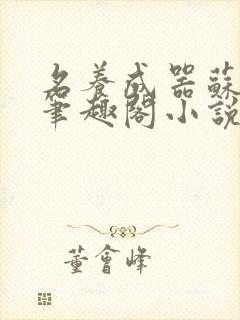 名養成器蘇
筆趣閣小說
董會峰